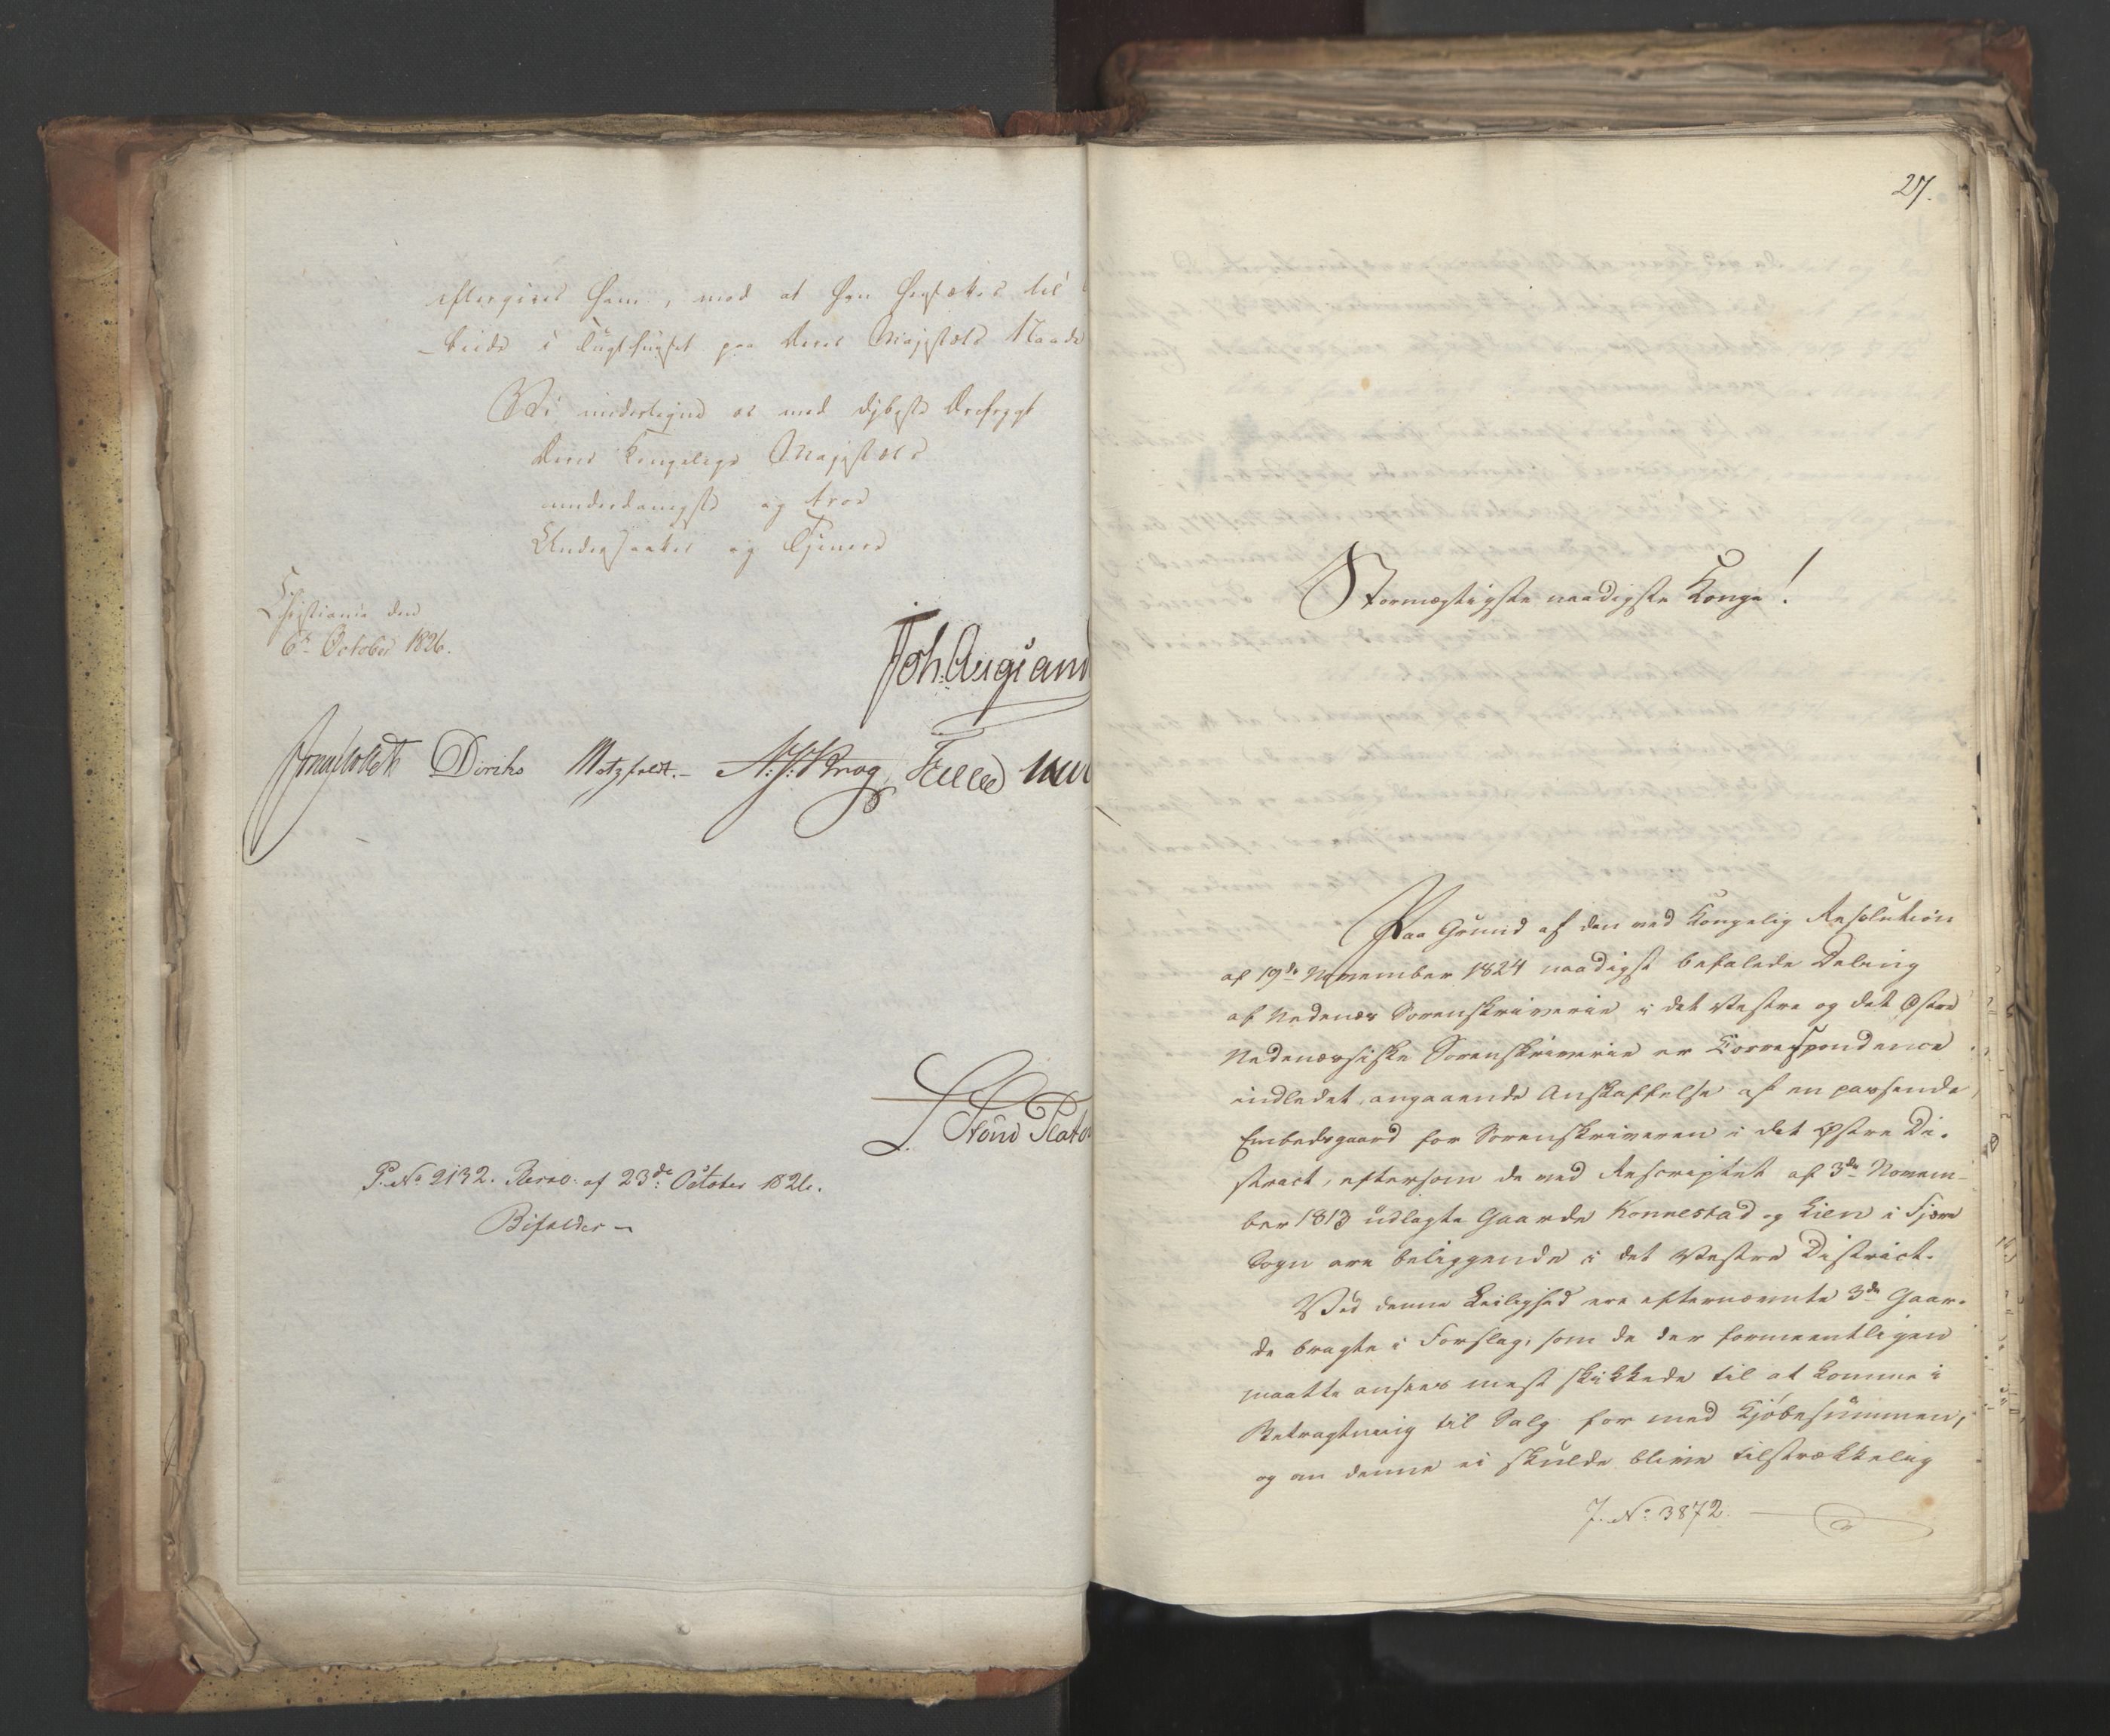 eftergives ham, mod at han hensættes til
-beide i Tugthuuset paa Deres Majestæts Naade
Vi undertegne os med dybeste Ærefrygt
Deres Kongelige Majestæts
underdanigste og troe
Undersaatter og Tjenere
Christiania den
6te October 1826.
Joh: Collett Diriks Motzfeldt.- Krog
L. Stoud Plato
P. No 2132. Reso: af 23de October 1826.
Bifaldes -
27.
Stormægtigste naadigste Konge!
Paa Grund af den ved Kongelig Resolution
af 19de November 1824 naadigst befalede Deling
af Nedenæs Sorenskriverie i det Vestre og det Østre
Nedenæssiske Sorenskriverie er Correspondence
indledet, angaaende Anskaffelse af en passende
Embedsgaard for Sorenskriveren i det Østre Di-
strict, eftersom de ved Rescriptet af 3de Novem-
ber 1813 udlagte Gaarde Konnestad og Lien i Fjære
Sogn ere beliggende i det Vestre District.
Ved denne Leilighed ere efternævnte 3de Gaar-
de bragte i Forslag, som de der formeentligen
maatte ansees mest skikkede til at komme i
Betragtning til Salg for med Kjöbesummen,
og om denne ei skulde blive tilstrækkelig
J. No 3872.